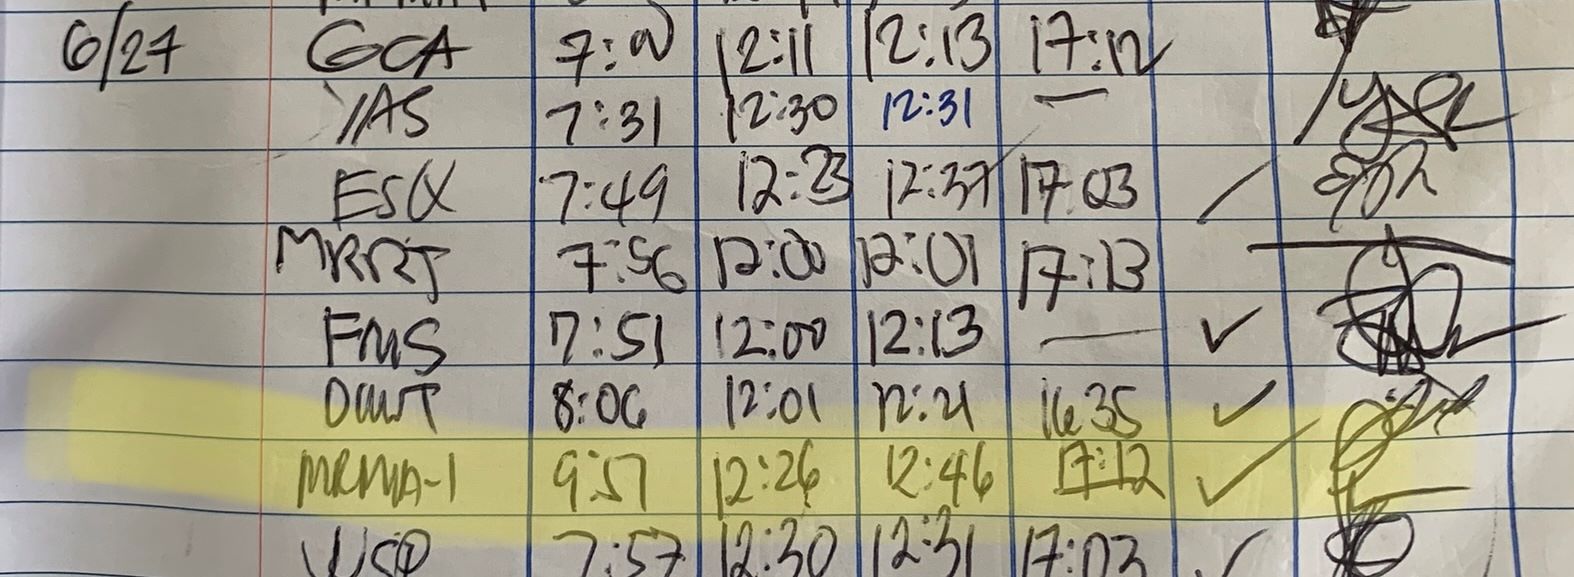 6/27 GCA 7:00 12:11 12:13 17:12
YAS 7:31 12:30 12:31 —
7:49 12:23 12:37 17:03
MRRJ 7:56 12:00 12:01 17:13
FMS 7:51 12:00 12:13 — ✓
8:06 12:01 12:21 16:35 ✓
MRMA-1 9:57 12:26 12:46 17:12 ✓
7:57 12:30 12:31 17:03 ✓